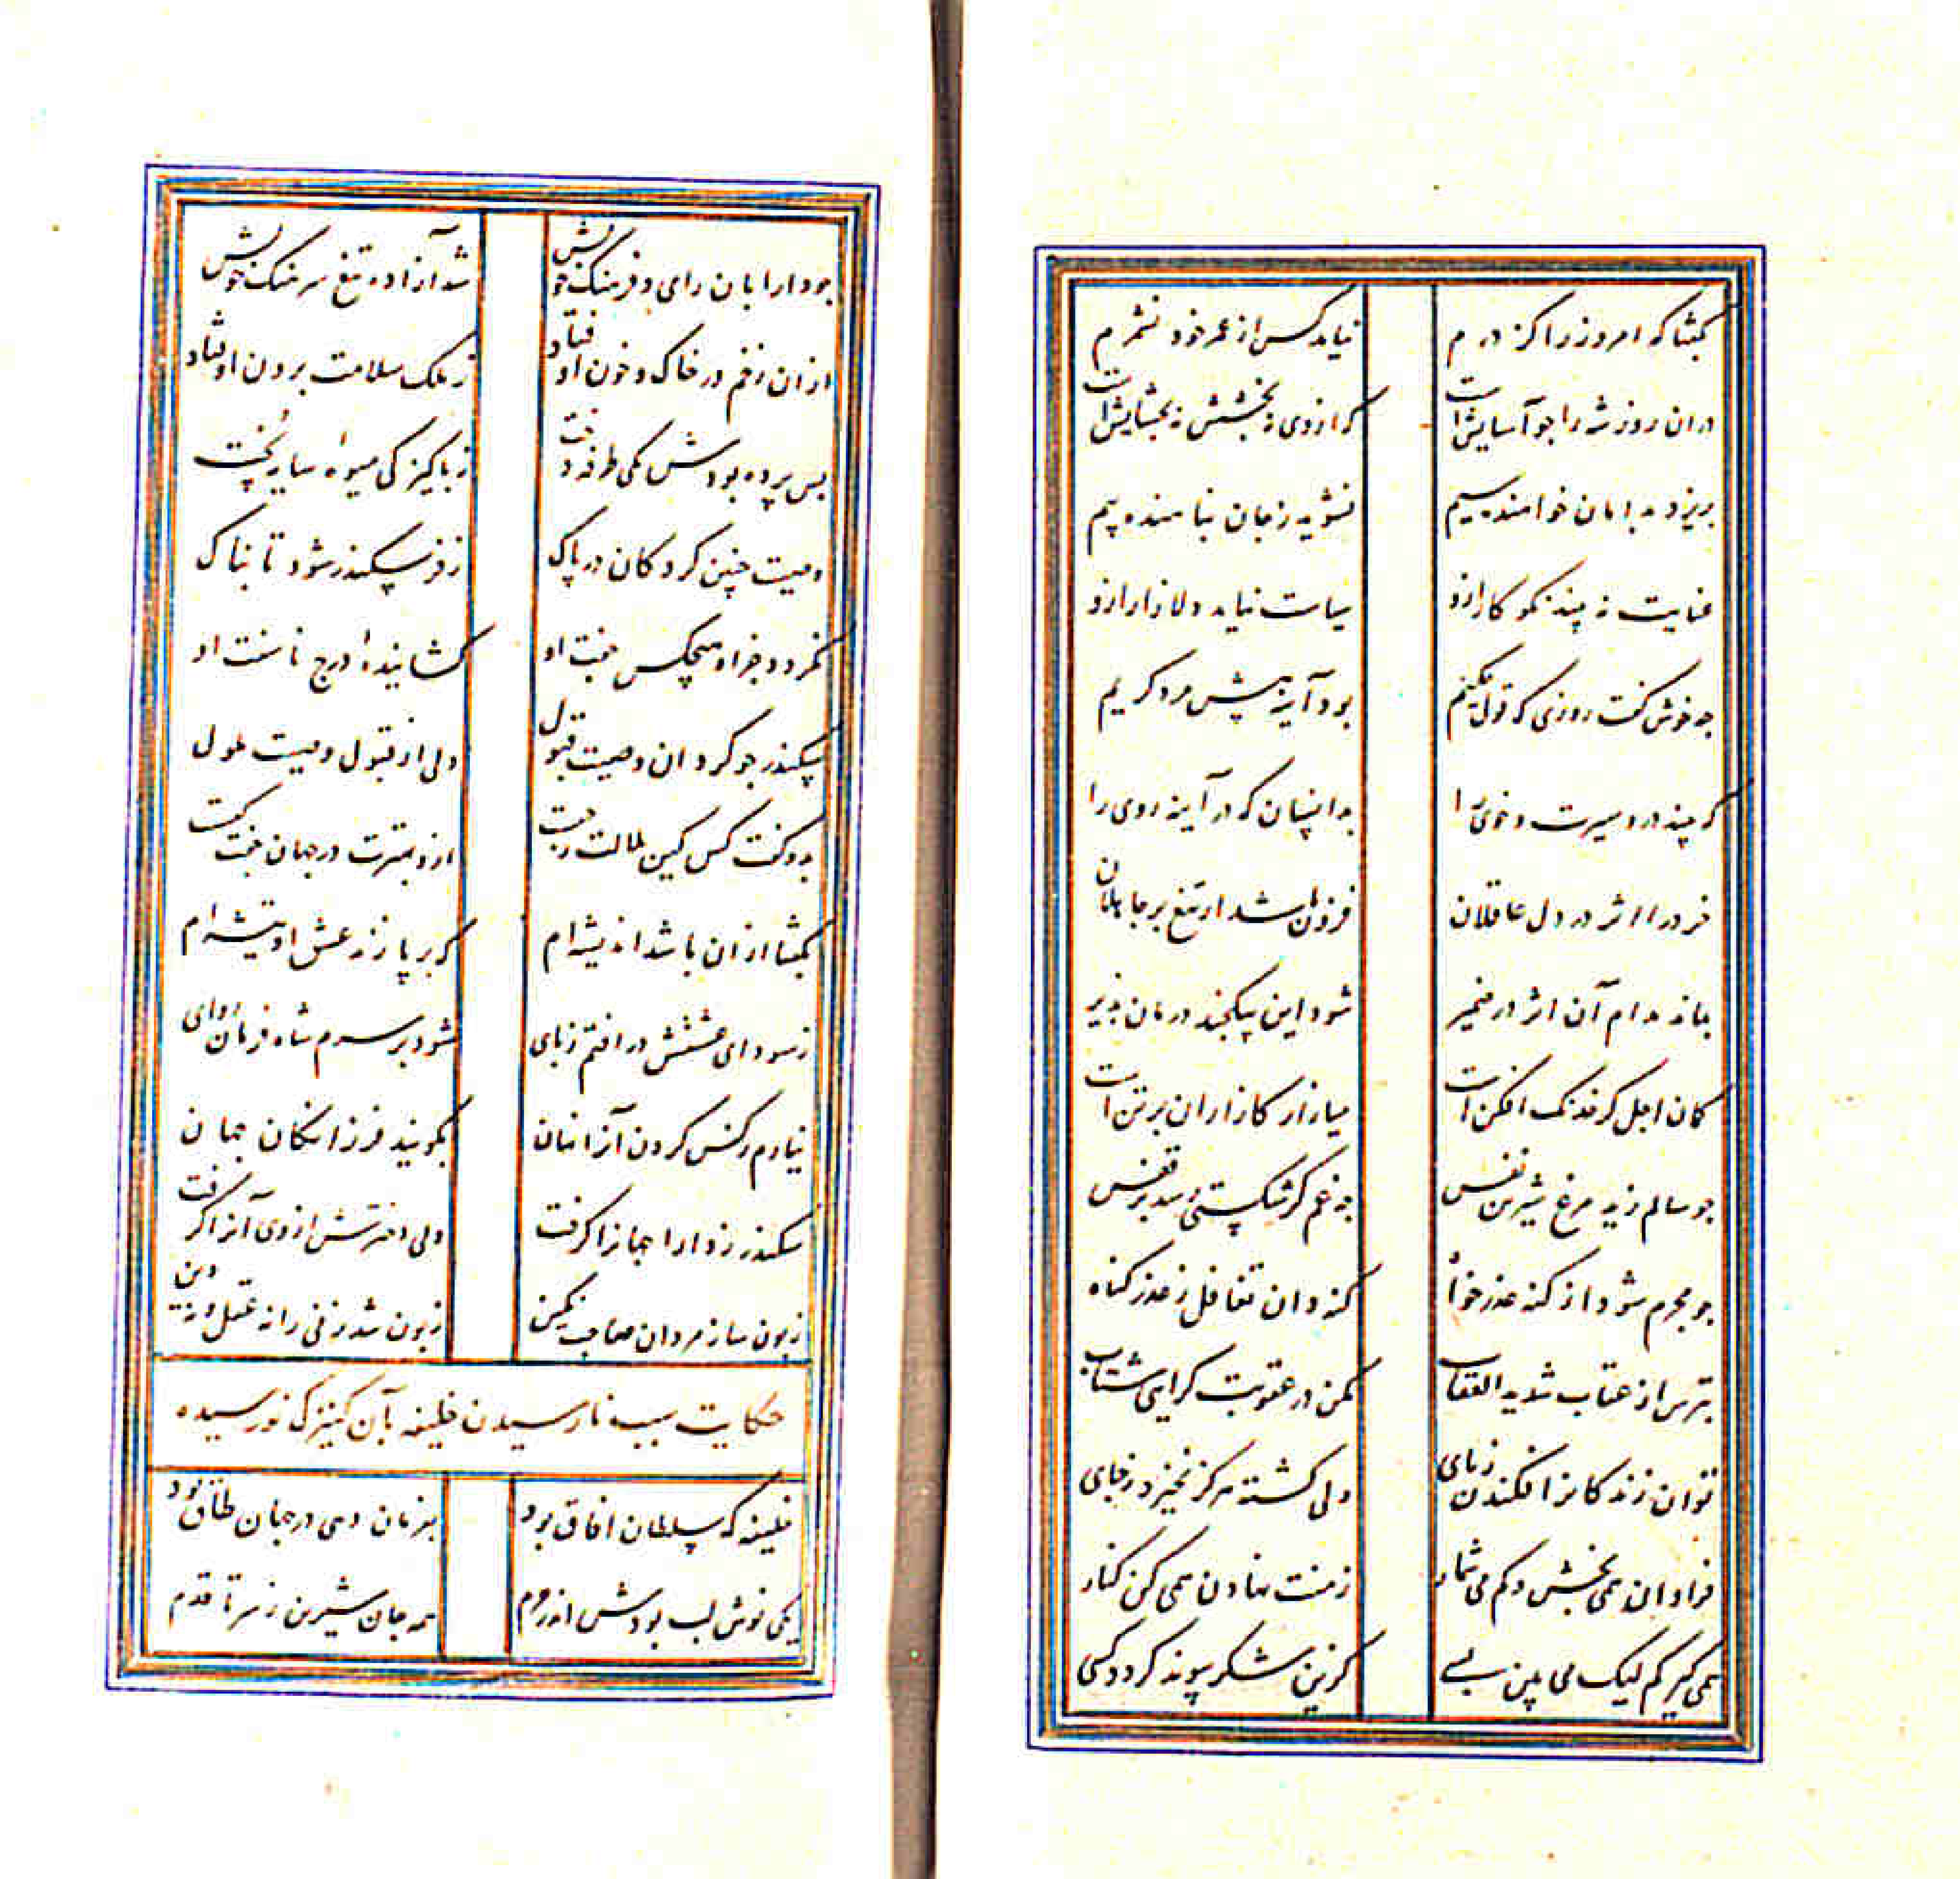 بگفتا که امروز را کز درم
نیاید کس از عمر خود نشمرم
در آن روز شه را چو آسایش است
کزو نی نه بخشش نه بخشایش است
بریزد به دامان خواهنده سیم
نشوید ز جان پناهنده بیم
عنایت نه بیند نکوکار ازو
سیاست نیابد دلازار ازو
چه خوش گفت روزی که قول حکیم
بود آینه پیش مرد کریم
که بیند درو سیرت و خوی را
بدانسان که در آینه روی را
خرد را اثر در دل عاقلان
فزون باشد از تیغ بر جاهلان
بماند مدام آن اثر در ضمیر
شود این بیک چند درمان پذیر
کمان اجل کز خدنگ افکن است
میازار کازار آن بر تن است
چو سالم زید مرغ شیرین نفس
چه غم گر شکستی رسد بر قفس
چو مجرم شود از گنه عذر خواه
گنه دان تغافل ز عذر گناه
بترس از عتاب شدید العقاب
مکن در عقوبت گرایی شتاب
توان زندگان را فکندن ز پای
ولی کشته هرگز نخیزد ز جای
فراوان همی بخش و کم می شمار
ز منت نهادن همی کن کنار
همی گیر کم لیک می بین بسی
کزین شکر پیوند گردد کسی
چو دارا بان رای و فرهنگ خویش
شد آزاده تیغ سرهنگ خویش
از آن زخم در خاک و خون اوفتاد
ز ملک سلامت برون اوفتاد
پس پرده بودش یکی طرفه دخت
ز پاکیزگی میوه سایه پخت
وصیت چنین کرد کان در پاک
ز فر سکندر شود تابناک
نگردد جز او هیچکس جفت او
گشاینده درج ناسفت او
سکندر چو کرد آن وصیت قبول
ولی از قبول وصیت ملول
بدو گفت کس کین ملالت ز چیست
ازو بهترت در جهان جفت کیست
بگفتا از آن باشد اندیشه ام
که بر پا زند عشق او تیشه ام
ز سودای عشقش در افتم ز پای
شود بر سرم شاه فرمان روای
نیارم رکنس کردن آنرا نهان
بگویند فرزانگان جهان
سکندر ز دارا جهان را گرفت
ولی دخترش از وی آنرا گرفت
زبون ساز مردان صاحب نگین
زبون شد زنی را نه عقل و نه دین
حکایت سبب نارسیدن خلیفه بآن کنیزک نورسیده
خلیفه که سلطان آفاق بود
بفرمان دهی در جهان طاق بود
یکی نوش لب بودش از روم
همه جان شیرین ز سر تا قدم